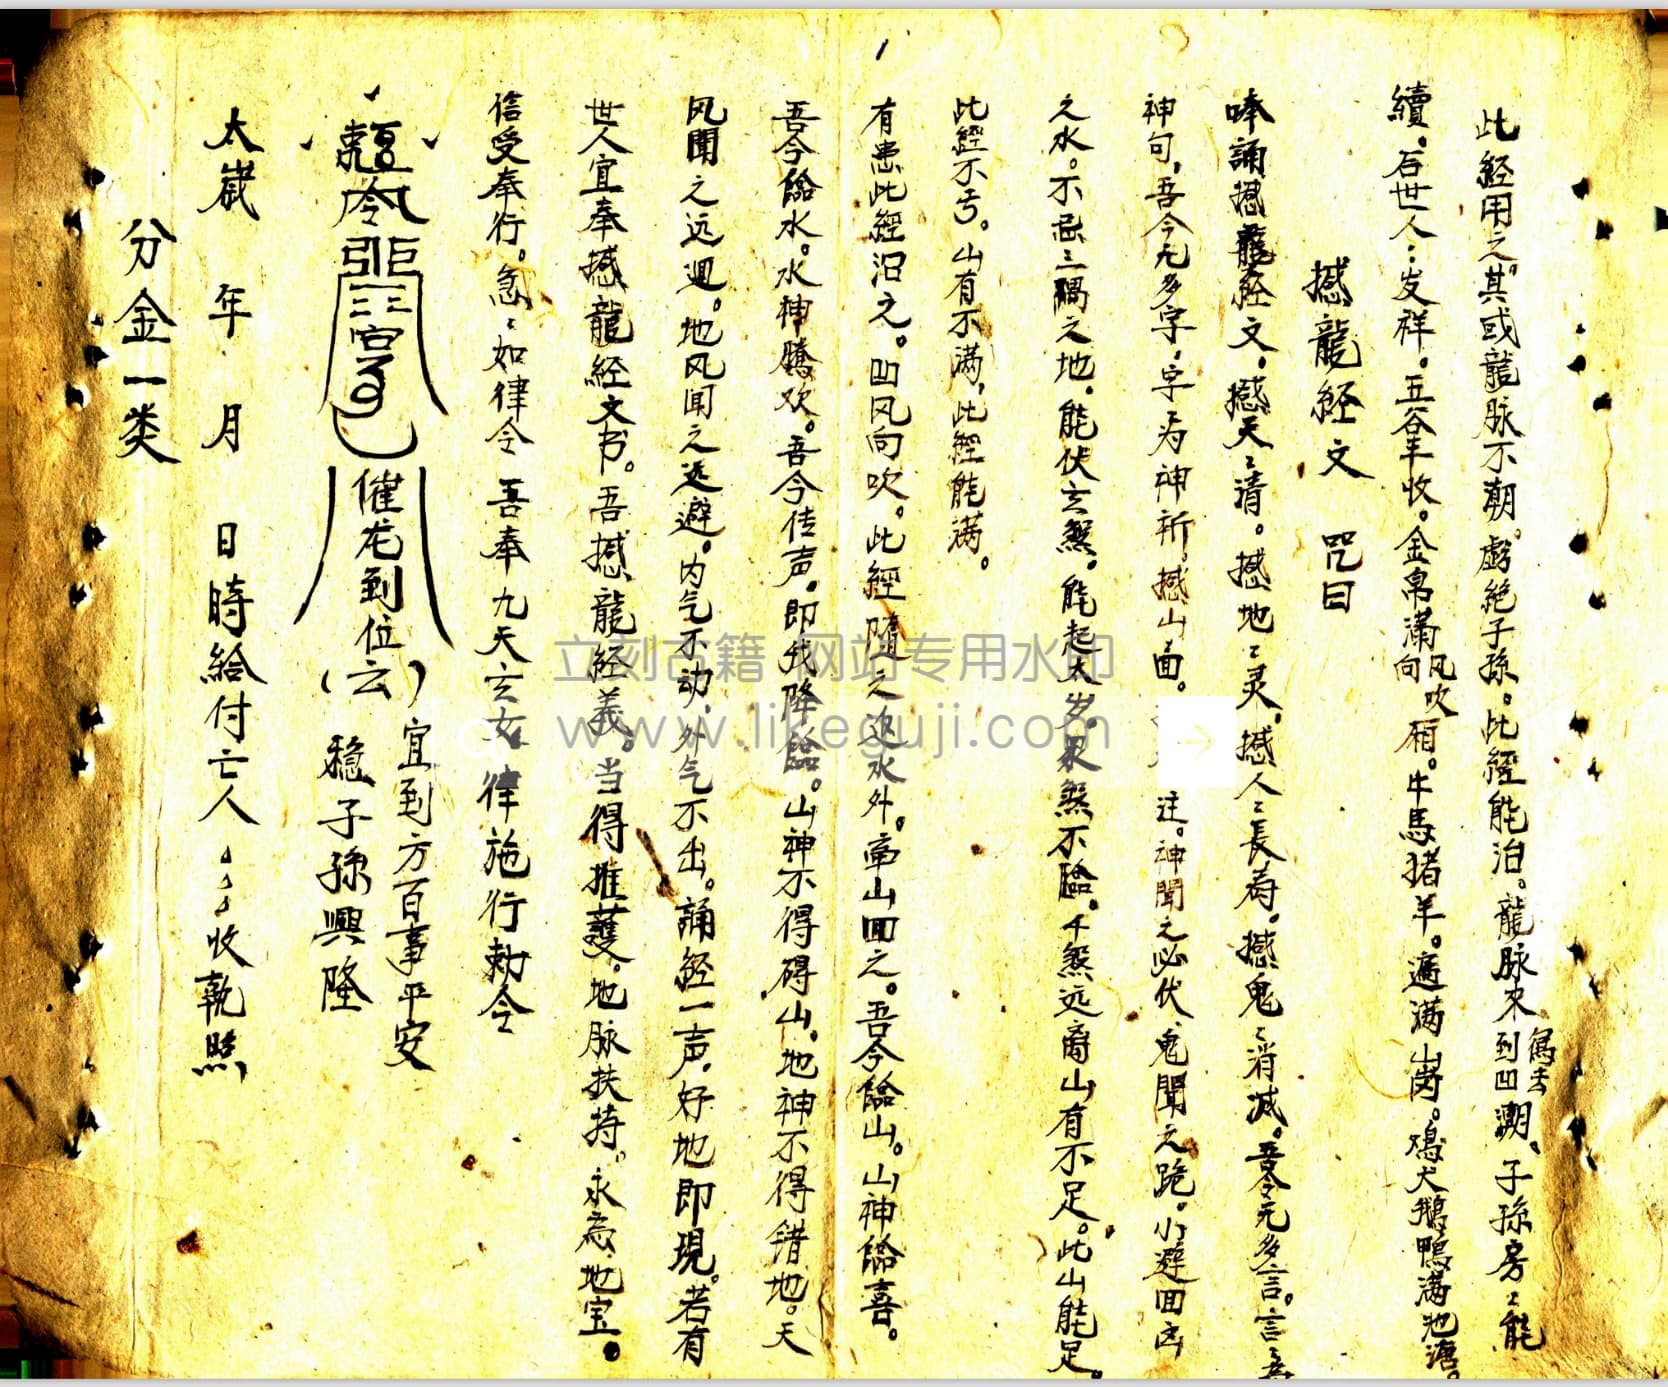 此經用之。其或龍脉不潮。虧絕子孫。此經能治。龍脉來到凹潮、子孫房〻能
寫去
續。后世人〻发祥。五谷丰收。金帛满箱。牛馬猪羊。遍满山崗。鸡犬鵝鴨满池溏。
凤吹向
撼龍經文 咒曰
唪誦撼龍經文。撼天〻清。撼地〻灵。撼人〻長寿。撼鬼〻消滅。吾今无多言。言〻為
神句，吾今无多字，字〻为神祈。撼山山面。 神聞之必伏、鬼聞之跪。小避回凶
之水。不忌三隅之地。能伏玄煞。能起太岁。眾煞不臨。千煞远离山有不足。此山能足。
此經不亏。山有不满，此經能满。
有患此經汩之。凹风向吹。此經隨之 水外。 山回之。吾今給山。山神給喜。
吾今給水。水神騰欢。吾今传声。即我降給。山神不得碍山。地神不得錯地。天
风聞之远迴。地风闻之远避。内气不动。外气不出。誦經一声。好地即現。若有
世人宜奉撼龍經文书。吾撼龍經義。当得推護。地脉扶持。永為地宝。
信受奉行。急〻如律令 吾奉九天玄女 律施行勅令
催龙到位
（云）
宜到方百事平安
穩子孫興隆
太嵗 年 月 日時給付亡人〻〻〻收執照
分金一类
立刻古籍 网站专用水印
www.likeguji.com